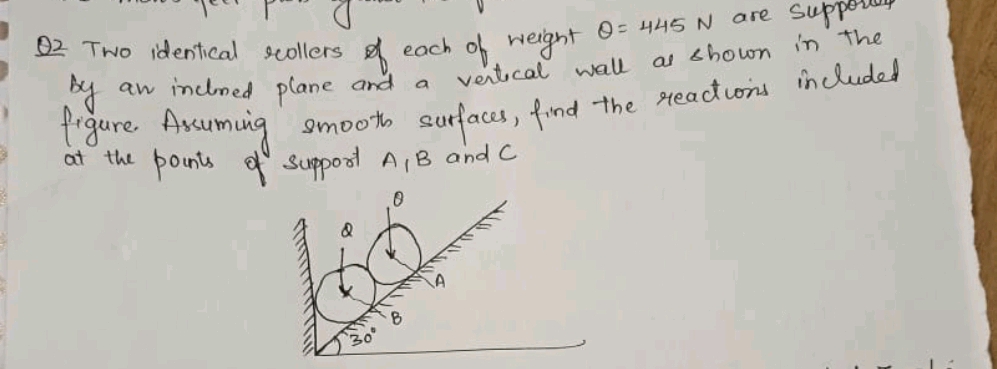 Q2 Two identical rollers of each of weight Q = 445 N are
by an inclined plane and a vertical wall as shown in the
figure. Assuming smooth surfaces, find the reactions included
at the points of support A, B and C
Q
Q
A
B
30°